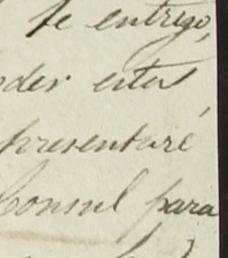 te entrego,
der estas,
presentaré
Consul para